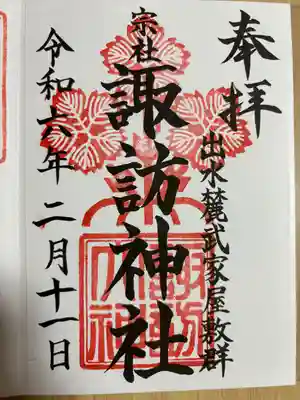 奉拝
出水麓武家屋敷群
宗社
諏訪神社
令和六年二月十一日